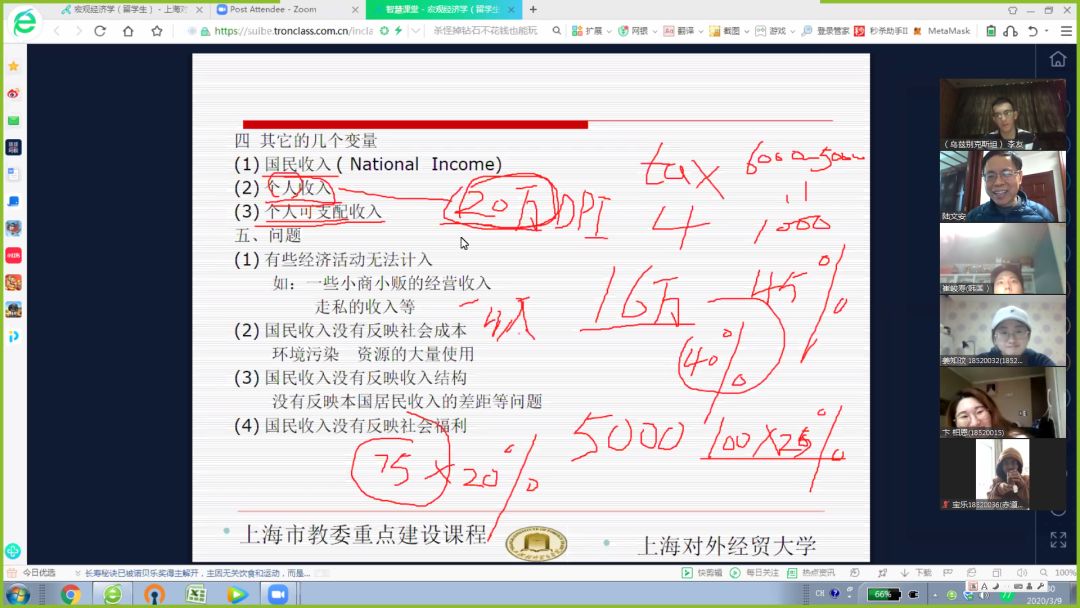 宏观经济学（留学生）- 上海对
Post Attendee - Zoom
智慧课堂 - 宏观经济学（留学生
https://suibe.tronclass.com.cn/incla
杀怪掉钻石不花钱也能玩
扩展
网银
翻译
截图
游戏
登录管家
秒杀助手II
MetaMask
四 其它的几个变量
(1) 国民收入 ( National Income)
(2) 个人收入
(3) 个人可支配收入
五、问题
(1) 有些经济活动无法计入
如：一些小商小贩的经营收入
走私的收入等
(2) 国民收入没有反映社会成本
环境污染 资源的大量使用
(3) 国民收入没有反映收入结构
没有反映本国居民收入的差距等问题
(4) 国民收入没有反映社会福利
20万 DPI
tax
4
6000-5000
1000
16万
45%
40%
5000
100×25%
75×20%
上海市教委重点建设课程
上海对外经贸大学
（乌兹别克斯坦）李友
陆文安
崔峻寿(韩国)
姜知旼 18520032(1852...
卞相恩(18520015)
宝乐18320036(赤道...
今日优选
长寿秘诀已被诺贝乐奖得主解开，主因无关饮食和运动，而是...
快剪辑
每日关注
热点资讯
下载
100%
CH
66%
2020/3/9